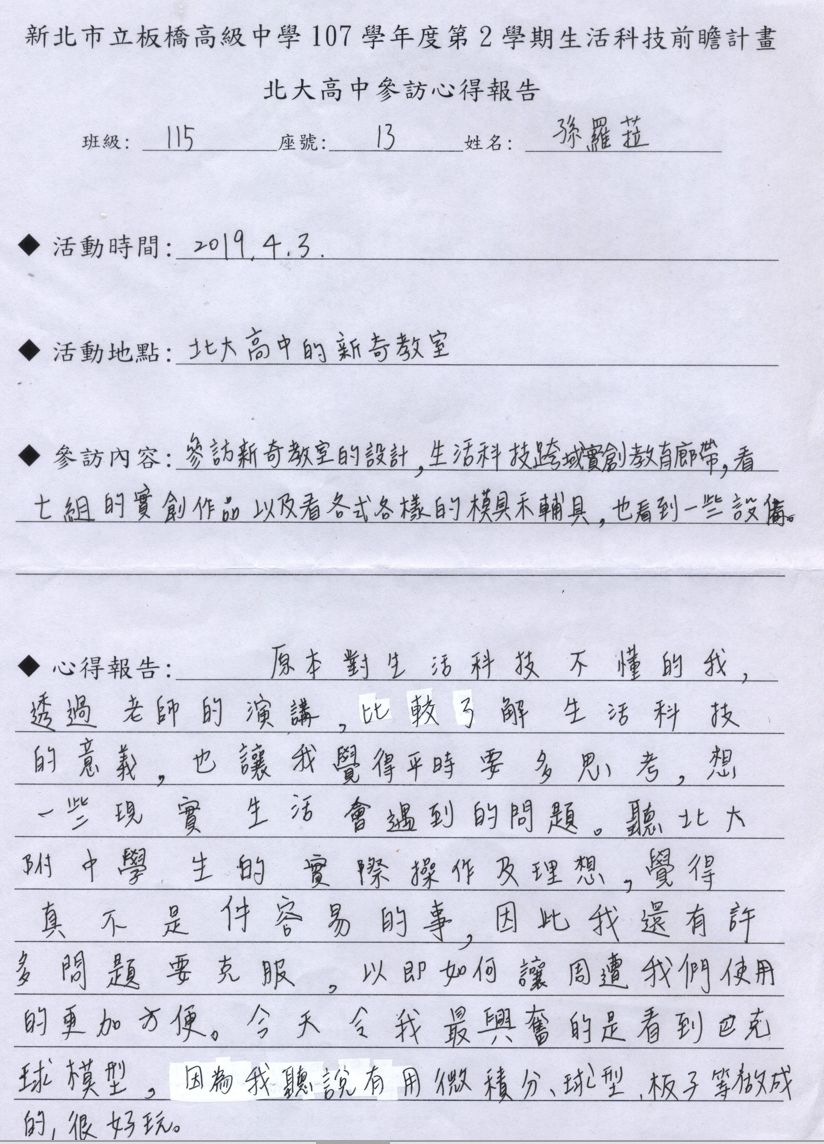 新北市立板橋高級中學 107 學年度第 2 學期生活科技前瞻計畫
北大高中參訪心得報告
班級: 115 座號: 13 姓名: 孫羅菈
◆ 活動時間: 2019.4.3.
◆ 活動地點: 北大高中的新奇教室
◆ 參訪內容: 參訪新奇教室的設計,生活科技跨域實創教育廊帶,看
七組的實創作品以及看各式各樣的模具禾輔具,也看到一些設備。
◆ 心得報告: 原本對生活科技不懂的我,
透過老師的演講,比較了解生活科技
的意義,也讓我覺得平時要多思考,想
一些現實生活會遇到的問題。聽北大
附中學生的實際操作及理想,覺得
真不是件容易的事,因此我還有許
多問題要克服,以即如何讓周遭我們使用
的更加方便。今天令我最興奮的是看到巴克
球模型,因為我聽說有用微積分、球型、板子等做成
的,很好玩。